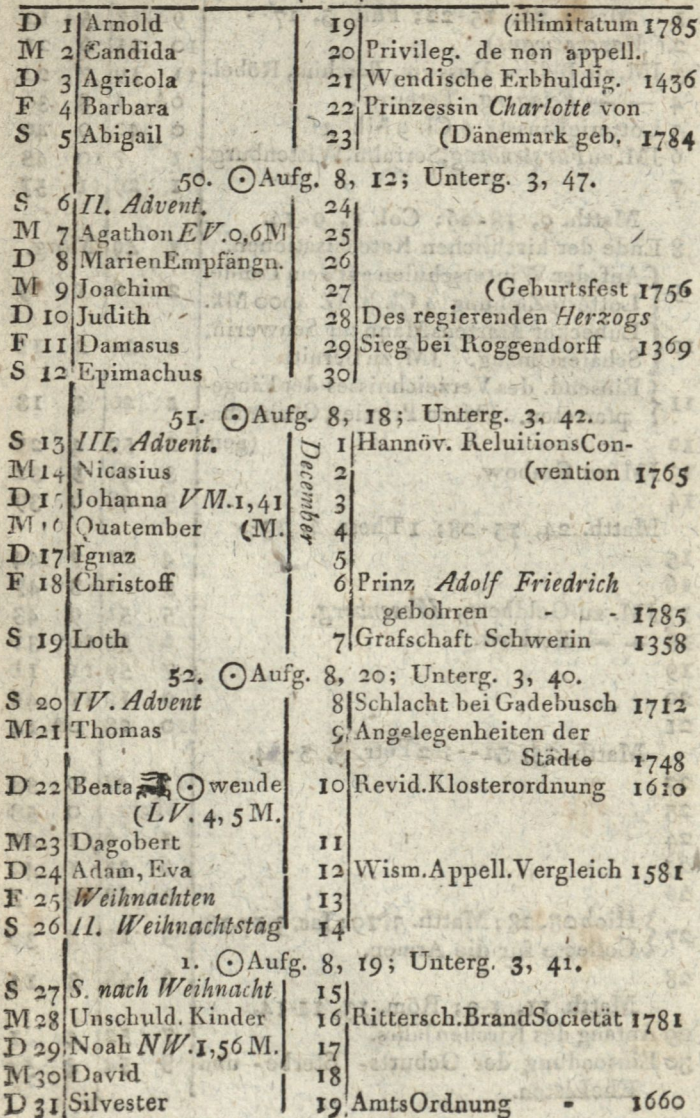 D 1 Arnold 19 (illimitatum 1785
M 2 Candida 20 Privileg. de non appell.
D 3 Agricola 21 Wendische Erbhuldig. 1436
F 4 Barbara 22 Prinzessin Charlotte von
S 5 Abigail 23 (Dänemark geb. 1784
50. ☉Aufg. 8, 12; Unterg. 3, 47.
S 6 II. Advent. 24
M 7 Agathon EV. 0, 6 M 25
D 8 MarienEmpfängn. 26
M 9 Joachim 27 (Geburtsfest 1756
D 10 Judith 28 Des regierenden Herzogs
F 11 Damasus 29 Sieg bei Roggendorff 1369
S 12 Epimachus 30
51. ☉Aufg. 8, 18; Unterg. 3, 42.
December
S 13 III. Advent. 1 Hannöv. ReluitionsCon-
M 14 Nicasius 2 (vention 1765
D 15 Johanna VM. 1, 41 3
M 16 Quatember (M. 4
D 17 Ignaz 5
F 18 Christoff 6 Prinz Adolf Friedrich
gebohren - - 1785
S 19 Loth 7 Grafschaft Schwerin 1358
52. ☉Aufg. 8, 20; Unterg. 3, 40.
S 20 IV. Advent 8 Schlacht bei Gadebusch 1712
M 21 Thomas 9 Angelegenheiten der
Städte 1748
D 22 Beata ☉wende 10 Revid. Klosterordnung 1610
(LV. 4, 5 M.
M 23 Dagobert 11
D 24 Adam, Eva 12 Wism. Appell. Vergleich 1581
F 25 Weihnachten 13
S 26 II. Weihnachtstag 14
1. ☉Aufg. 8, 19; Unterg. 3, 41.
S 27 S. nach Weihnacht 15
M 28 Unschuld. Kinder 16 Rittersch. BrandSocietät 1781
D 29 Noah NW. 1, 56 M. 17
M 30 David 18
D 31 Silvester 19 AmtsOrdnung - 1660